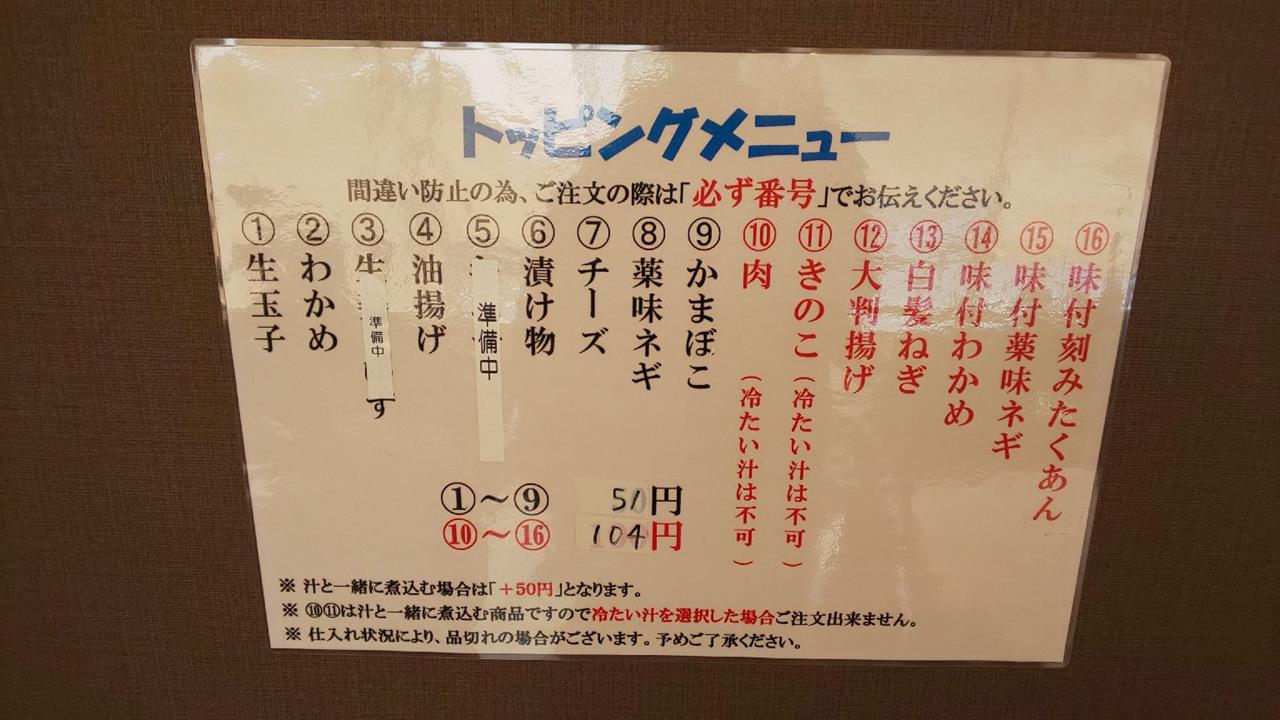 トッピングメニュー
間違い防止の為、ご注文の際は「必ず番号」でお伝えください。
①生玉子
②わかめ
③生 す
準備中
④油揚げ
⑤
準備中
⑥漬け物
⑦チーズ
⑧薬味ネギ
⑨かまぼこ
⑩肉(冷たい汁は不可)
⑪きのこ(冷たい汁は不可)
⑫大判揚げ
⑬白髪ねぎ
⑭味付わかめ
⑮味付薬味ネギ
⑯味付刻みたくあん
①～⑨ 51円
⑩～⑯ 104円
※ 汁と一緒に煮込む場合は「+50円」となります。
※ ⑩⑪は汁と一緒に煮込む商品ですので冷たい汁を選択した場合ご注文出来ません。
※ 仕入れ状況により、品切れの場合がございます。予めご了承ください。